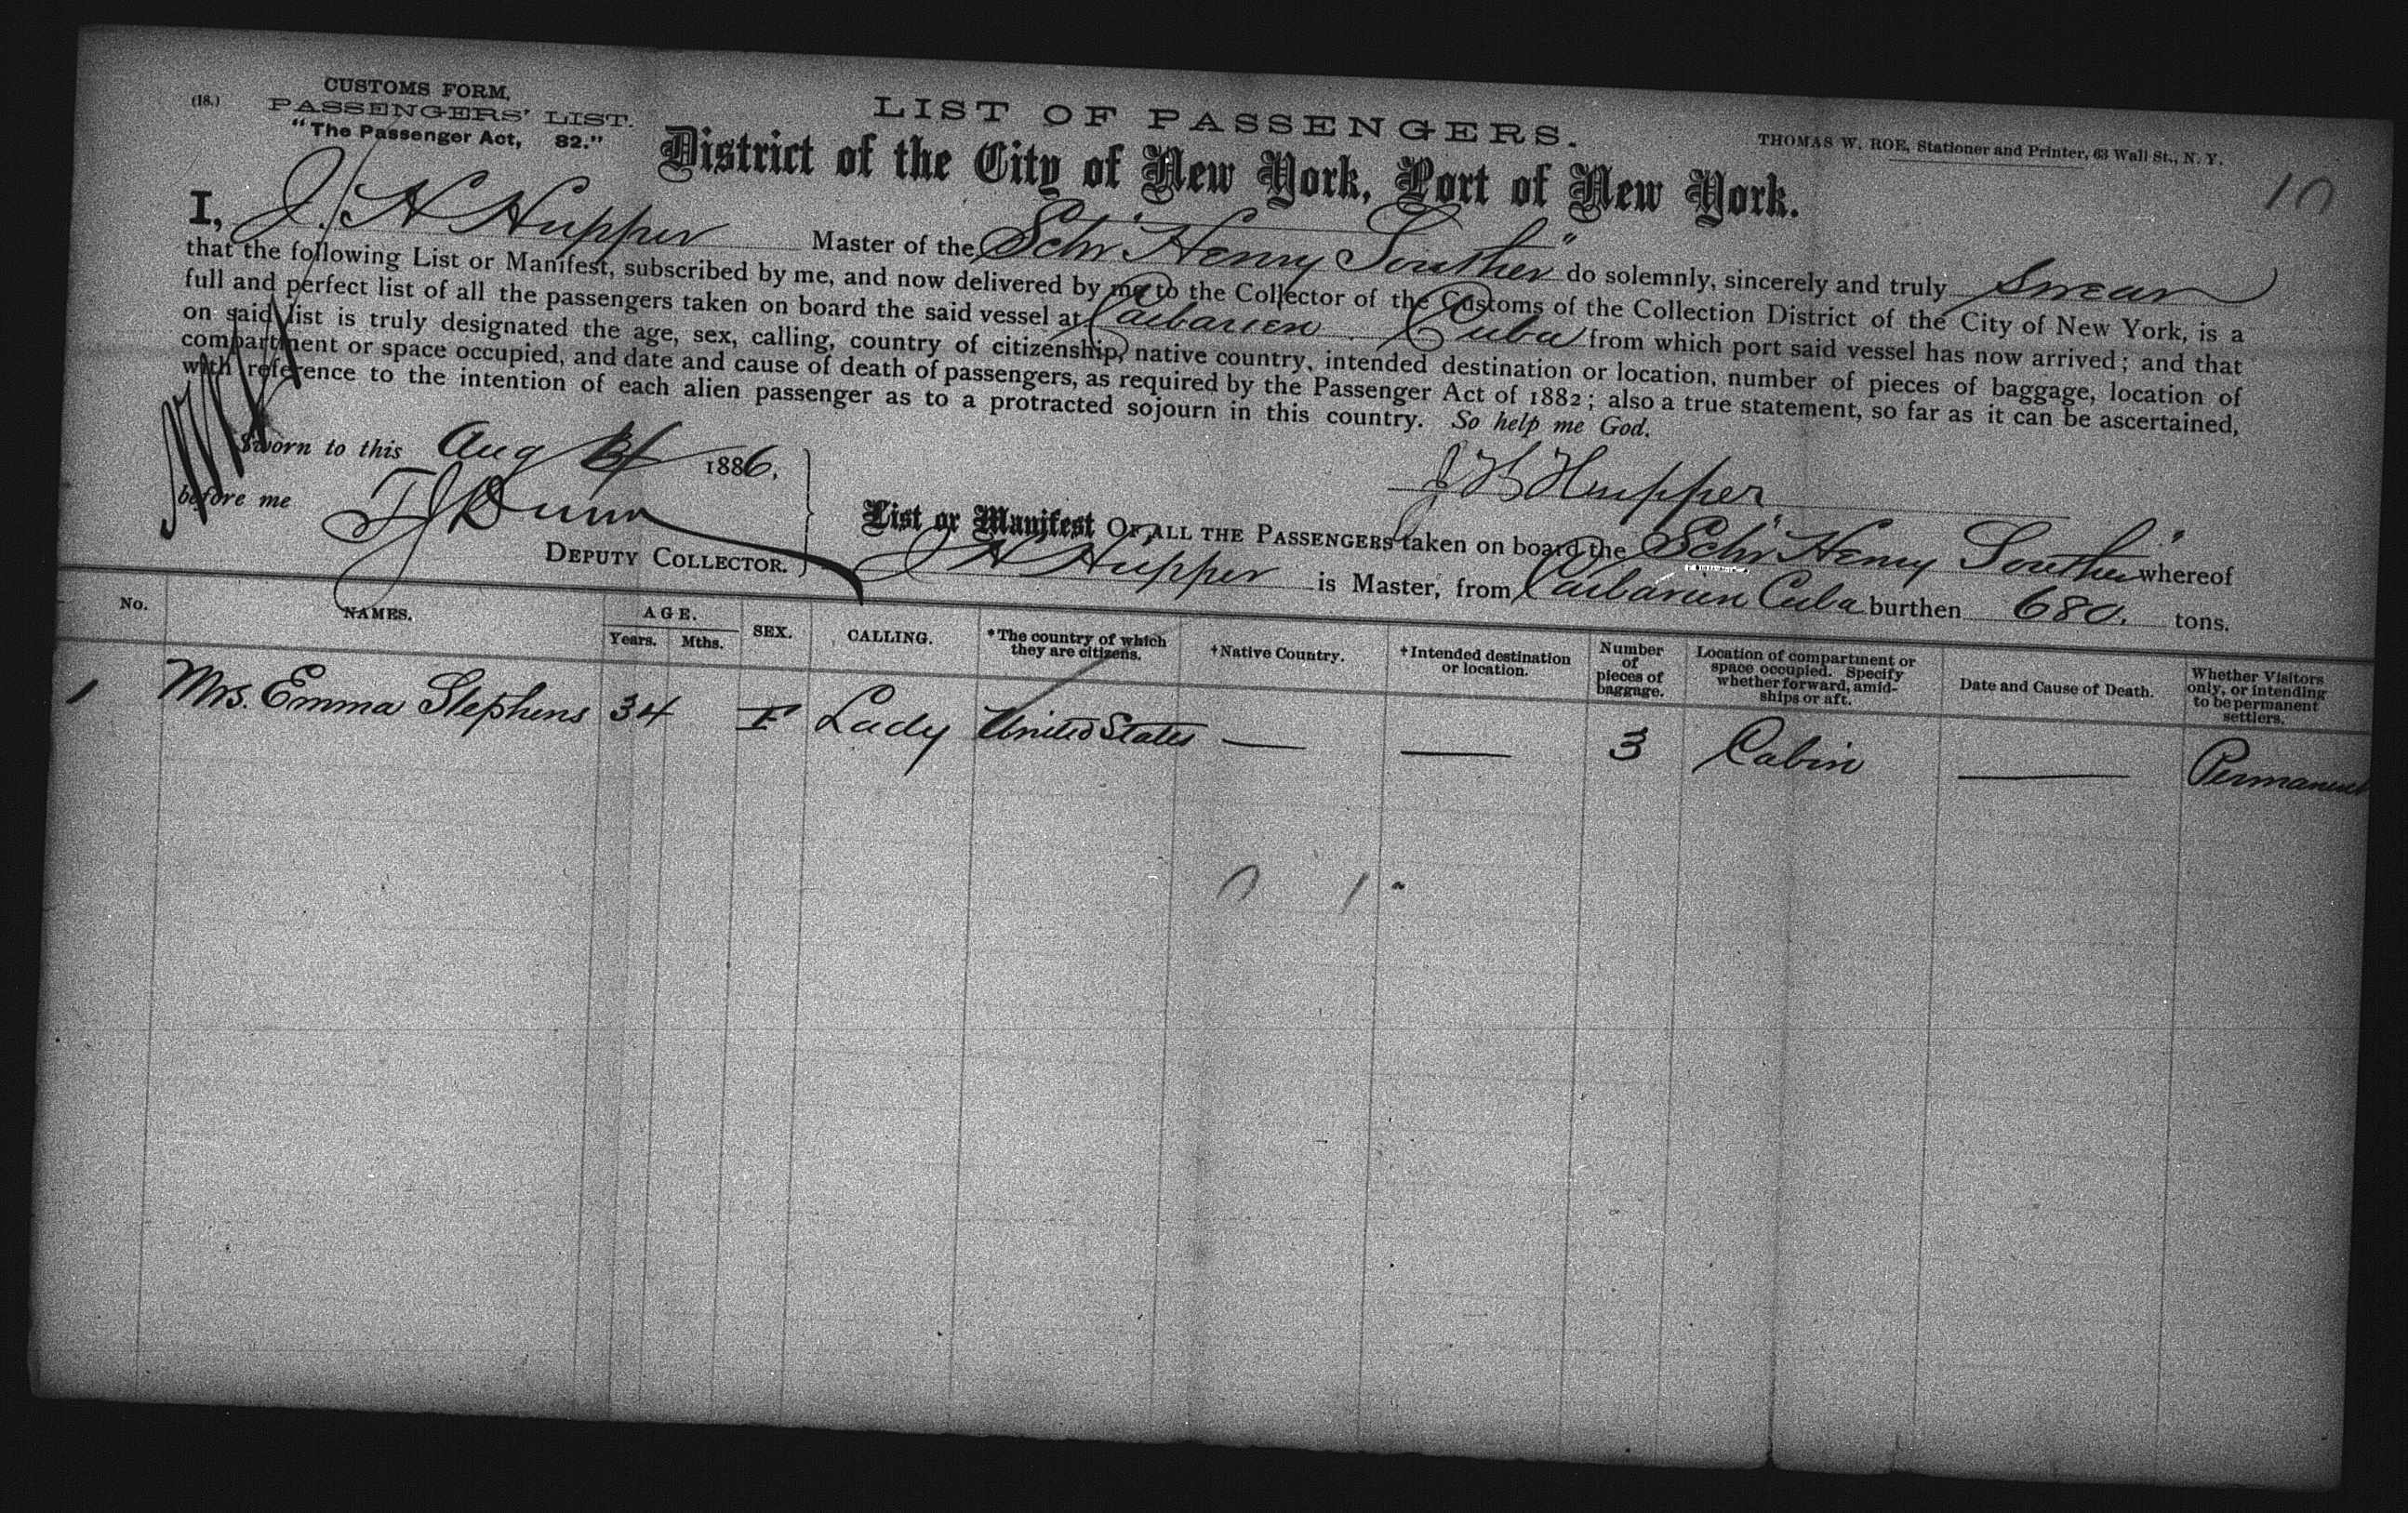 (18.)
CUSTOMS FORM,
PASSENGERS' LIST.
"The Passenger Act, 82."
LIST OF PASSENGERS.
THOMAS W. ROE, Stationer and Printer, 63 Wall St., N. Y.
10
District of the City of New York, Port of New York.
I, J. H Hupper Master of the Schr "Henry Souther" do solemnly, sincerely and truly Swear
that the following List or Manifest, subscribed by me, and now delivered by me to the Collector of the Customs of the Collection District of the City of New York, is a
full and perfect list of all the passengers taken on board the said vessel at Caibarien Cuba from which port said vessel has now arrived; and that
on said list is truly designated the age, sex, calling, country of citizenship, native country, intended destination or location, number of pieces of baggage, location of
compartment or space occupied, and date and cause of death of passengers, as required by the Passenger Act of 1882; also a true statement, so far as it can be ascertained,
with reference to the intention of each alien passenger as to a protracted sojourn in this country. So help me God.
Sworn to this Aug 1886,
J H Hupper
before me T J Dunn
DEPUTY COLLECTOR.
List or Manifest OF ALL THE PASSENGERS taken on board the Schr "Henry Souther" whereof
J H Hupper is Master, from Caibarien Cuba burthen 680. tons.
No. NAMES. AGE. Years. Mths. SEX. CALLING. *The country of which they are citizens. †Native Country. †Intended destination or location. Number of pieces of baggage. Location of compartment or space occupied. Specify whether forward, amidships or aft. Date and Cause of Death. Whether Visitors only, or intending to be permanent settlers.
1 Mrs. Emma Stephens 34 F Lady United States — — 3 Cabin — Permanent